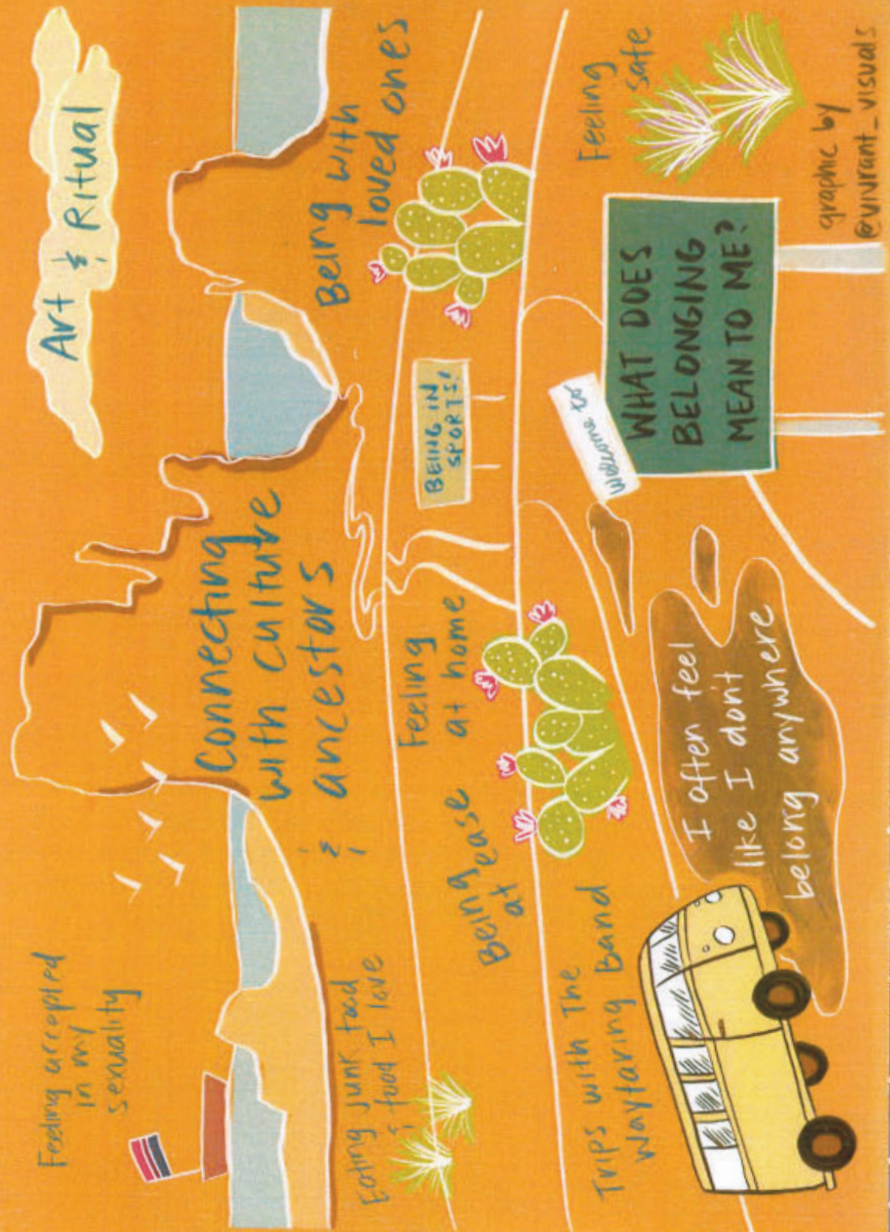 Feeling accepted
in my
sexuality
Art & Ritual
Connecting
with culture
& ancestors
Being with
loved ones
Eating junk food
& food I love
Being
at ease
Feeling
at home
BEING IN
SPORTS!
Feeling
safe
Trips with The
Wayfaring Band
I often feel
like I don't
belong anywhere
Welcome to
WHAT DOES
BELONGING
MEAN TO ME?
graphic by
@vivrant_visuals